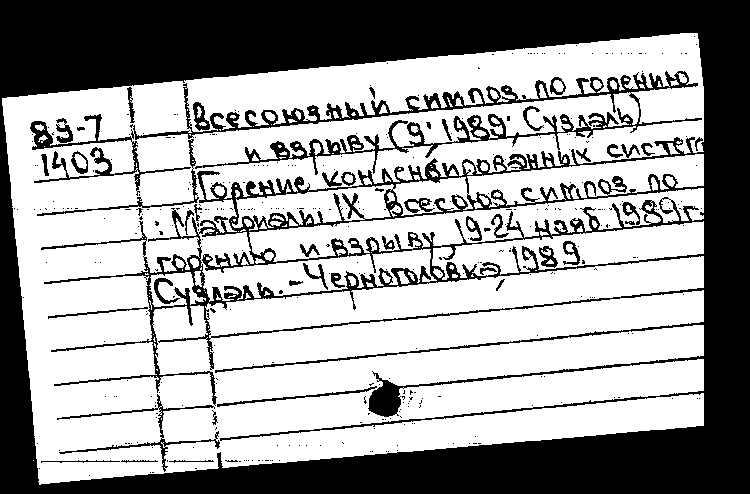 89-7
1403
Всесоюзный симпоз. по горению
и взрыву (9; 1989; Суздаль)
Горение конденсированных систем
: Материалы IX Всесоюз. симпоз. по
горению и взрыву, 19-24 нояб. 1989 г.
Суздаль. - Черноголовка, 1989.